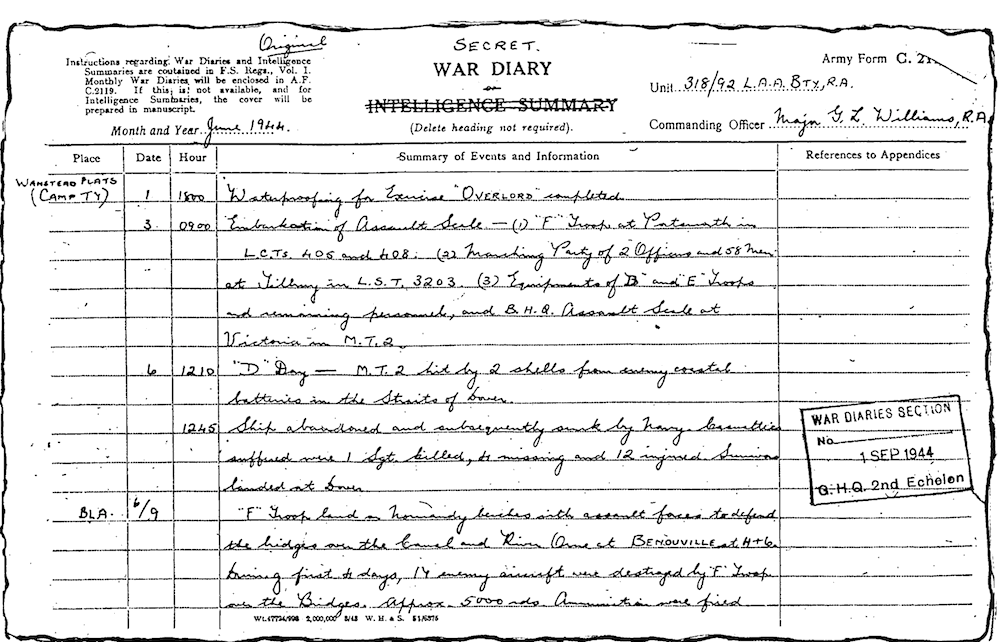 Original
SECRET.
Instructions regarding War Diaries and Intelligence
Summaries are contained in F.S. Regs., Vol. I.
Monthly War Diaries will be enclosed in A.F.
C.2119. If this is not available, and for
Intelligence Summaries, the cover will be
prepared in manuscript.
Month and Year June 1944.
WAR DIARY
or
INTELLIGENCE SUMMARY
(Delete heading not required).
Army Form C. 21
Unit 318/92 L.A.A. BTY, R.A.
Commanding Officer Major G. L. Williams, R.A.
Place Date Hour Summary of Events and Information References to Appendices
WANSTEAD FLATS
(CAMP T7) 1 1800 Waterproofing for Exercise "OVERLORD" completed
3. 0900 Embarkation of Assault Scale — (1) "F" Troop at Portsmouth in
L.C.Ts. 405 and 408: (2) Marching Party of 2 Officers and 58 Men
at Tilbury in L.S.T. 3203. (3) Equipments of "D" and "E" Troops
and remaining personnel, and B.H.Q. Assault Scale at
Victoria in M.T.2.
6 1210 "D" Day — M.T.2 hit by 2 shells from enemy coastal
batteries in the Straits of Dover.
1245 Ship abandoned and subsequently sunk by Navy. Casualties
suffered were 1 Sgt. killed, 4 missing and 12 injured. Survivors
landed at Dover.
BLA. 6/9 "F" Troop land on Normandy beaches with assault forces to defend
the bridges over the Canal and River Orne at BENOUVILLE at H+6.
During first 4 days, 17 enemy aircraft were destroyed by "F" Troop
over the Bridges. Approx. 5000 rds. Ammunition were fired
WAR DIARIES SECTION
No.
1 SEP 1944
G.H.Q. 2nd Echelon
Wt.47724/998 2,000,000 8/43 W. H. & S. 51/6375